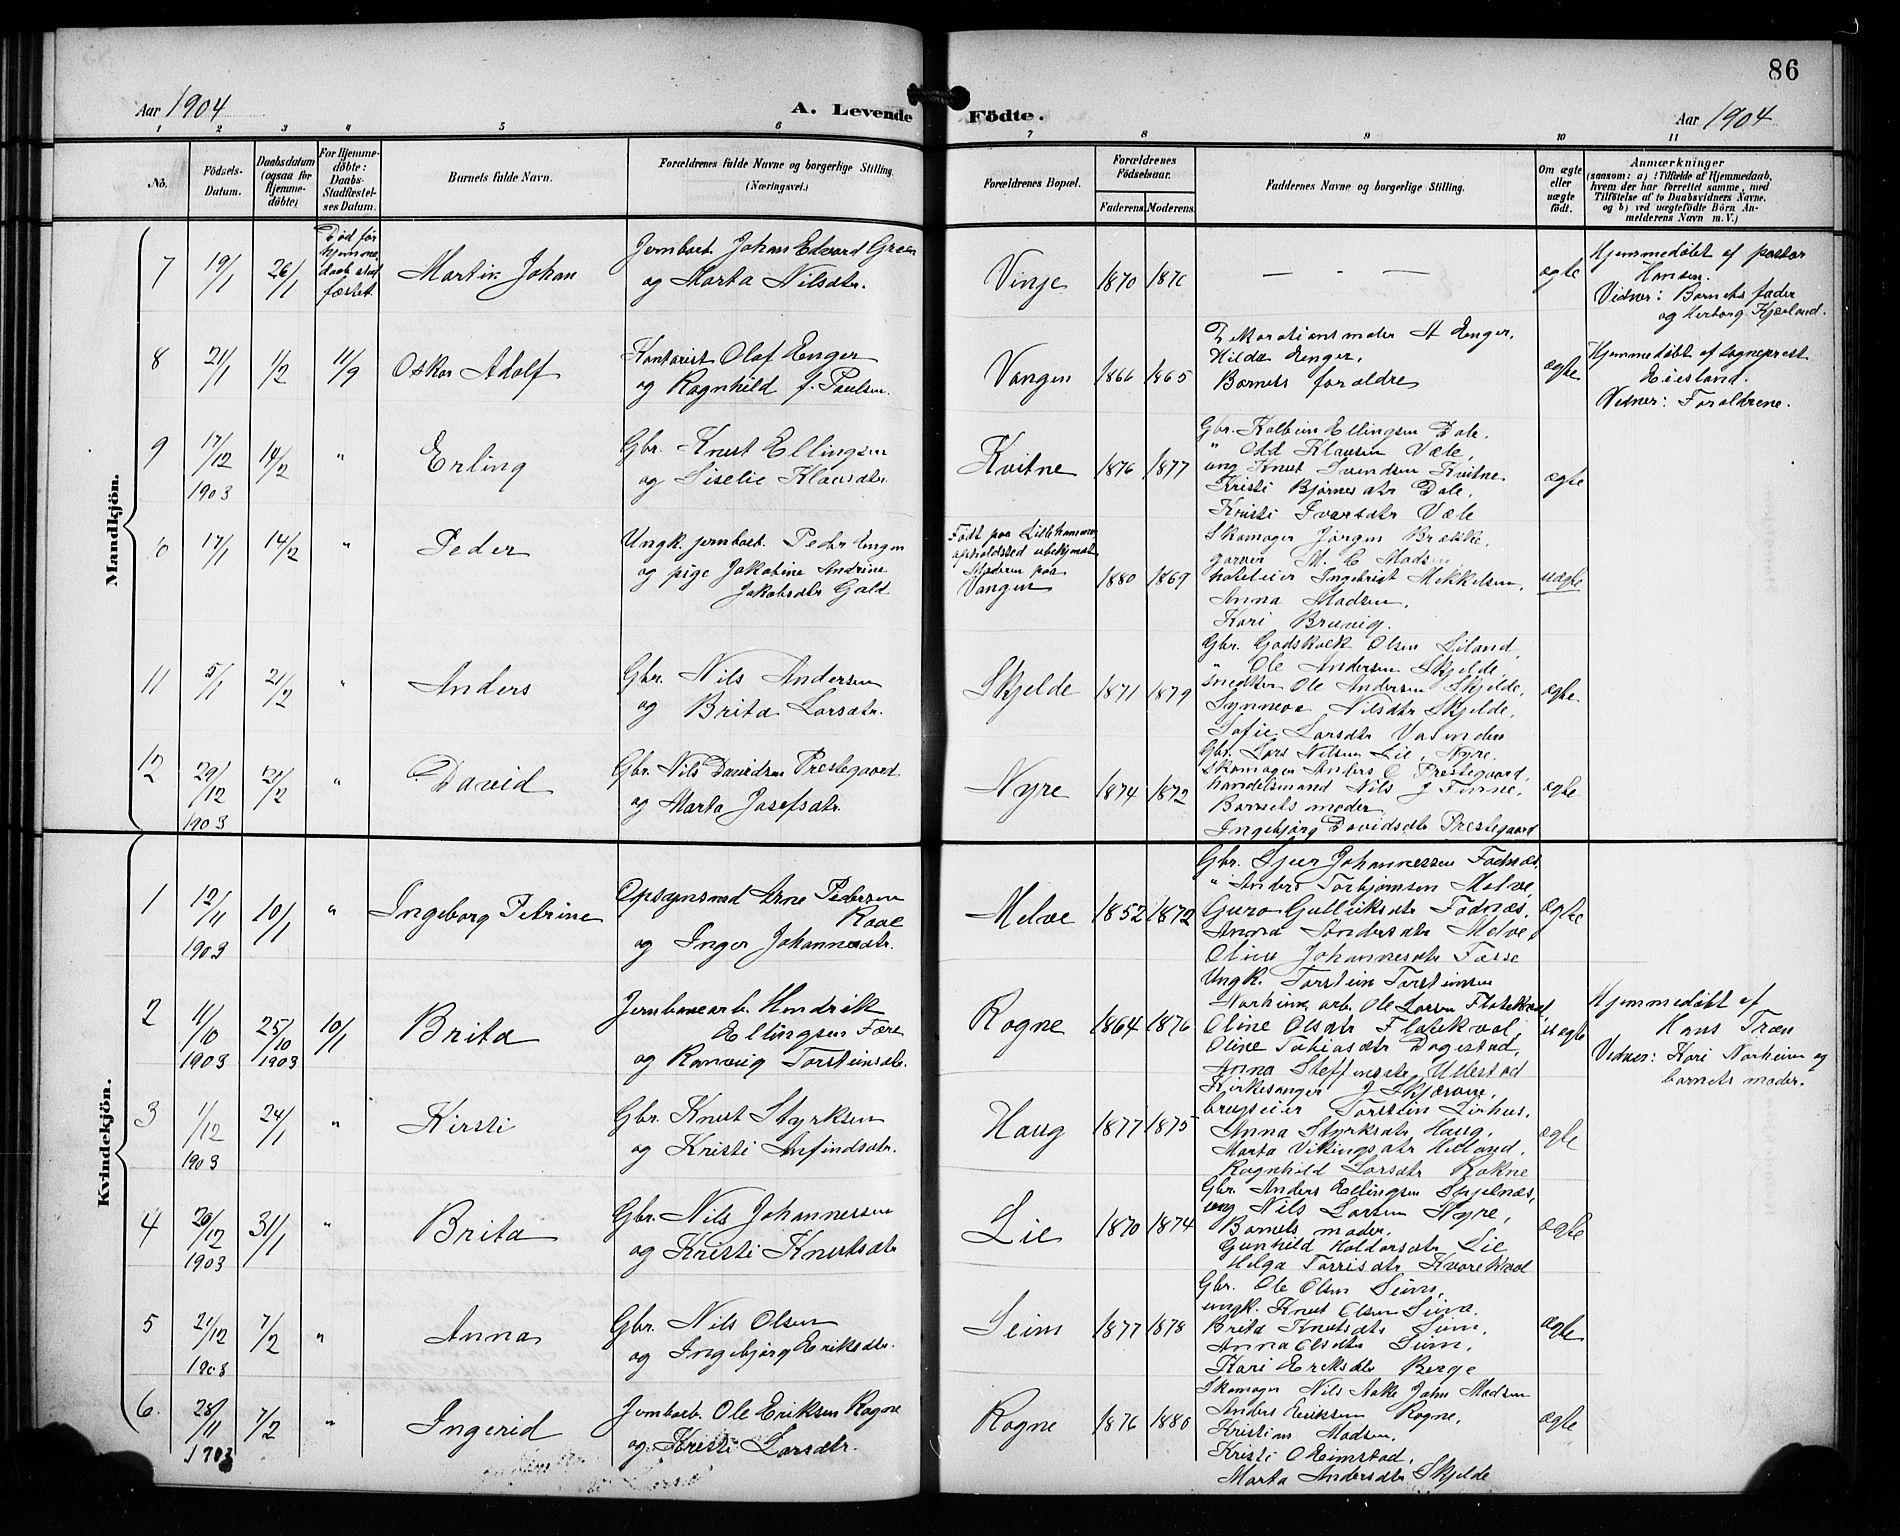 86
Aar 1904
A. Levende
Födte.
Aar 1904
1 2 3 4 5 6 7 8 9 10 11
No.
Födsels-
Datum.
Daabsdatum
(ogsaa for
Hjemme-
döbte)
For Hjemme-
döbte:
Daabs-
Stadfæstel-
ses Datum.
Barnets fulde Navn.
Forældrenes fulde Navne og borgerlige Stilling.
(Næringsvei.)
Forældrenes Bopæl.
Forældrenes
Födselsaar.
Faderens Moderens
Faddernes Navne og borgerlige Stilling.
Om ægte
eller
uægte
födt.
Anmærkninger
(saasom: a) i Tilfælde af Hjemmedaab,
hvem der har forrettet samme, med
Tilföielse af to Daabsvidners Navne.
og b) ved uægtefödte Börn An-
melderens Navn m. V.)
Mandkjön.
7
19/1
26/1
Död för
hjemme
daab stad
fæstet
Martin Johan
Jernbarb. Johan Edvard Green
og Marta Nilsdtr.
Vinje
1870
1870
— - —
ægte
Hjemmedöbt af pastor
Hansen.
Vidner: Barnets fader
og Herborg Kjærland.
8
21/1
1/2
11/9
Oskar Adolf
Kontorist Olaf Enger
og Ragnhild f. Paulsen
Vangen
1866
1865
Dekorationsmaler A Enger,
Hilda Enger,
Barnets forældre
ægte
Hjemmedöbt af sogneprest
Eiesland.
Vidner: Forældrene.
9
17/12
1903
14/2
"
Erling
Gbr. Knut Ellingsen
og Siselie Klausdtr.
Kvitne
1876
1877
Gbr. Kolbein Ellingsen Dale,
" Odd Klausen Væle,
ung Knut Svendsen Kvitne
Kristi Bjørnesdtr Dale,
Kristi Ivarsdtr Væle
ægte
10
17/1
14/2
"
Peder
Ungk. jernbarb. Peder Engen
og pige Jakobine Andrine
Jakobsdtr Gald
Födt paa Lillehammer,
opholdssted ubekjendt
Moderen paa
Vangen
1880
1869
Skomager Jörgen Brække,
garver M. C Madsen
hoteleier Ingebrigt Mikkelsen,
Anna Madsen,
Kari Bruvig.
uægte
11
5/1
21/2
"
Anders
Gbr. Nils Andersen
og Brita Larsdtr.
Skjelde
1871
1879
Gbr. Godskalk Olsen Liland,
" Ole Andersen Skjelde,
snedker Ole Andersen Skjelde,
Synneva Nilsdtr Skjelde,
Sofie Larsdtr Vasenden
ægte
12
29/12
1903
21/2
"
David
Gbr. Nils Davidsen Prestegaard
og Marta Josefsdtr.
Nyre
1874
1872
Gbr. Lars Nilsen Lie, Nyre,
Skomager Anders C Prestegaard,
handelsmand Nils J Finne,
Barnets moder
Ingebjörg Davidsdtr Prestegaard
ægte
Kvindekjön.
1
12/11
1903
10/1
"
Ingeborg Petrine
Opsynsmd Arne Pedersen
Raae
og Inger Johannesdtr.
Melve
1852
1872
Gbr. Sjur Johannessen Fadnæs,
" Anders Torbjørnsen Melve,
Guro Gulleiksdtr Fadnæs,
Anna Andersdtr Melve,
Oline Johannesdtr Fasse
Ægte
2
11/10
1903
25/10
1903
10/1
Brita
Jernbanearb. Hendrik
Ellingsen Føre
og Ranveig Torsteinsdtr.
Rogne
1864
1876
Ungk. Torstein Torsteinsen
Norheim, arb. Ole Larsen Flatekval
Oline Olsdtr Flatekval,
Oline Tobiasdtr Dagestad,
Anna Steffensdtr Ullestad
uægte
Hjemmedöbt af
Hans Træn
Vidner: Kari Norheim og
barnets moder.
3
1/12
1903
24/1
"
Kirsti
Gbr. Knut Styrksen
og Kristi Anfindsdtr.
Haug
1877
1875
Kirkesanger J Skjerven,
brugseier Torstein Lirhus,
Anna Styrksdtr Haug,
Marta Vikingsdtr Helland,
Ragnhild Larsdtr Rokne
ægte
4
20/12
1903
31/1
"
Brita
Gbr. Nils Johannessen
og Kristi Knutsdtr
Lie
1870
1874
Gbr. Anders Ellingsen Skjelnæs,
ung Nils Larsen Nyre,
Barnets moder,
Gunhild Haldorsdtr Lie
Helga Torrisdtr Kvarekval
ægte
5
21/12
1903
7/2
"
Anna
Gbr. Nils Olsen
og Ingebjörg Eriksdtr.
Seim
1877
1878
Gbr. Ole Olsen Seim,
ungk. Knut Olsen Seim,
Brita Knutsdtr Seim,
Anna Olsdtr Seim,
Kari Eriksdtr Berge
ægte
6.
28/11
1903
7/2
"
Ingerid
Jernbarb. Ole Eriksen Rogne
og Kristi Larsdtr.
Rogne
1876
1880
Skomager Nils Aake John Madsen
Anders Eriksen Rogne,
Kristine Madsen,
Kristi O Heimstad,
Marta Andersdtr Skjelde
ægte